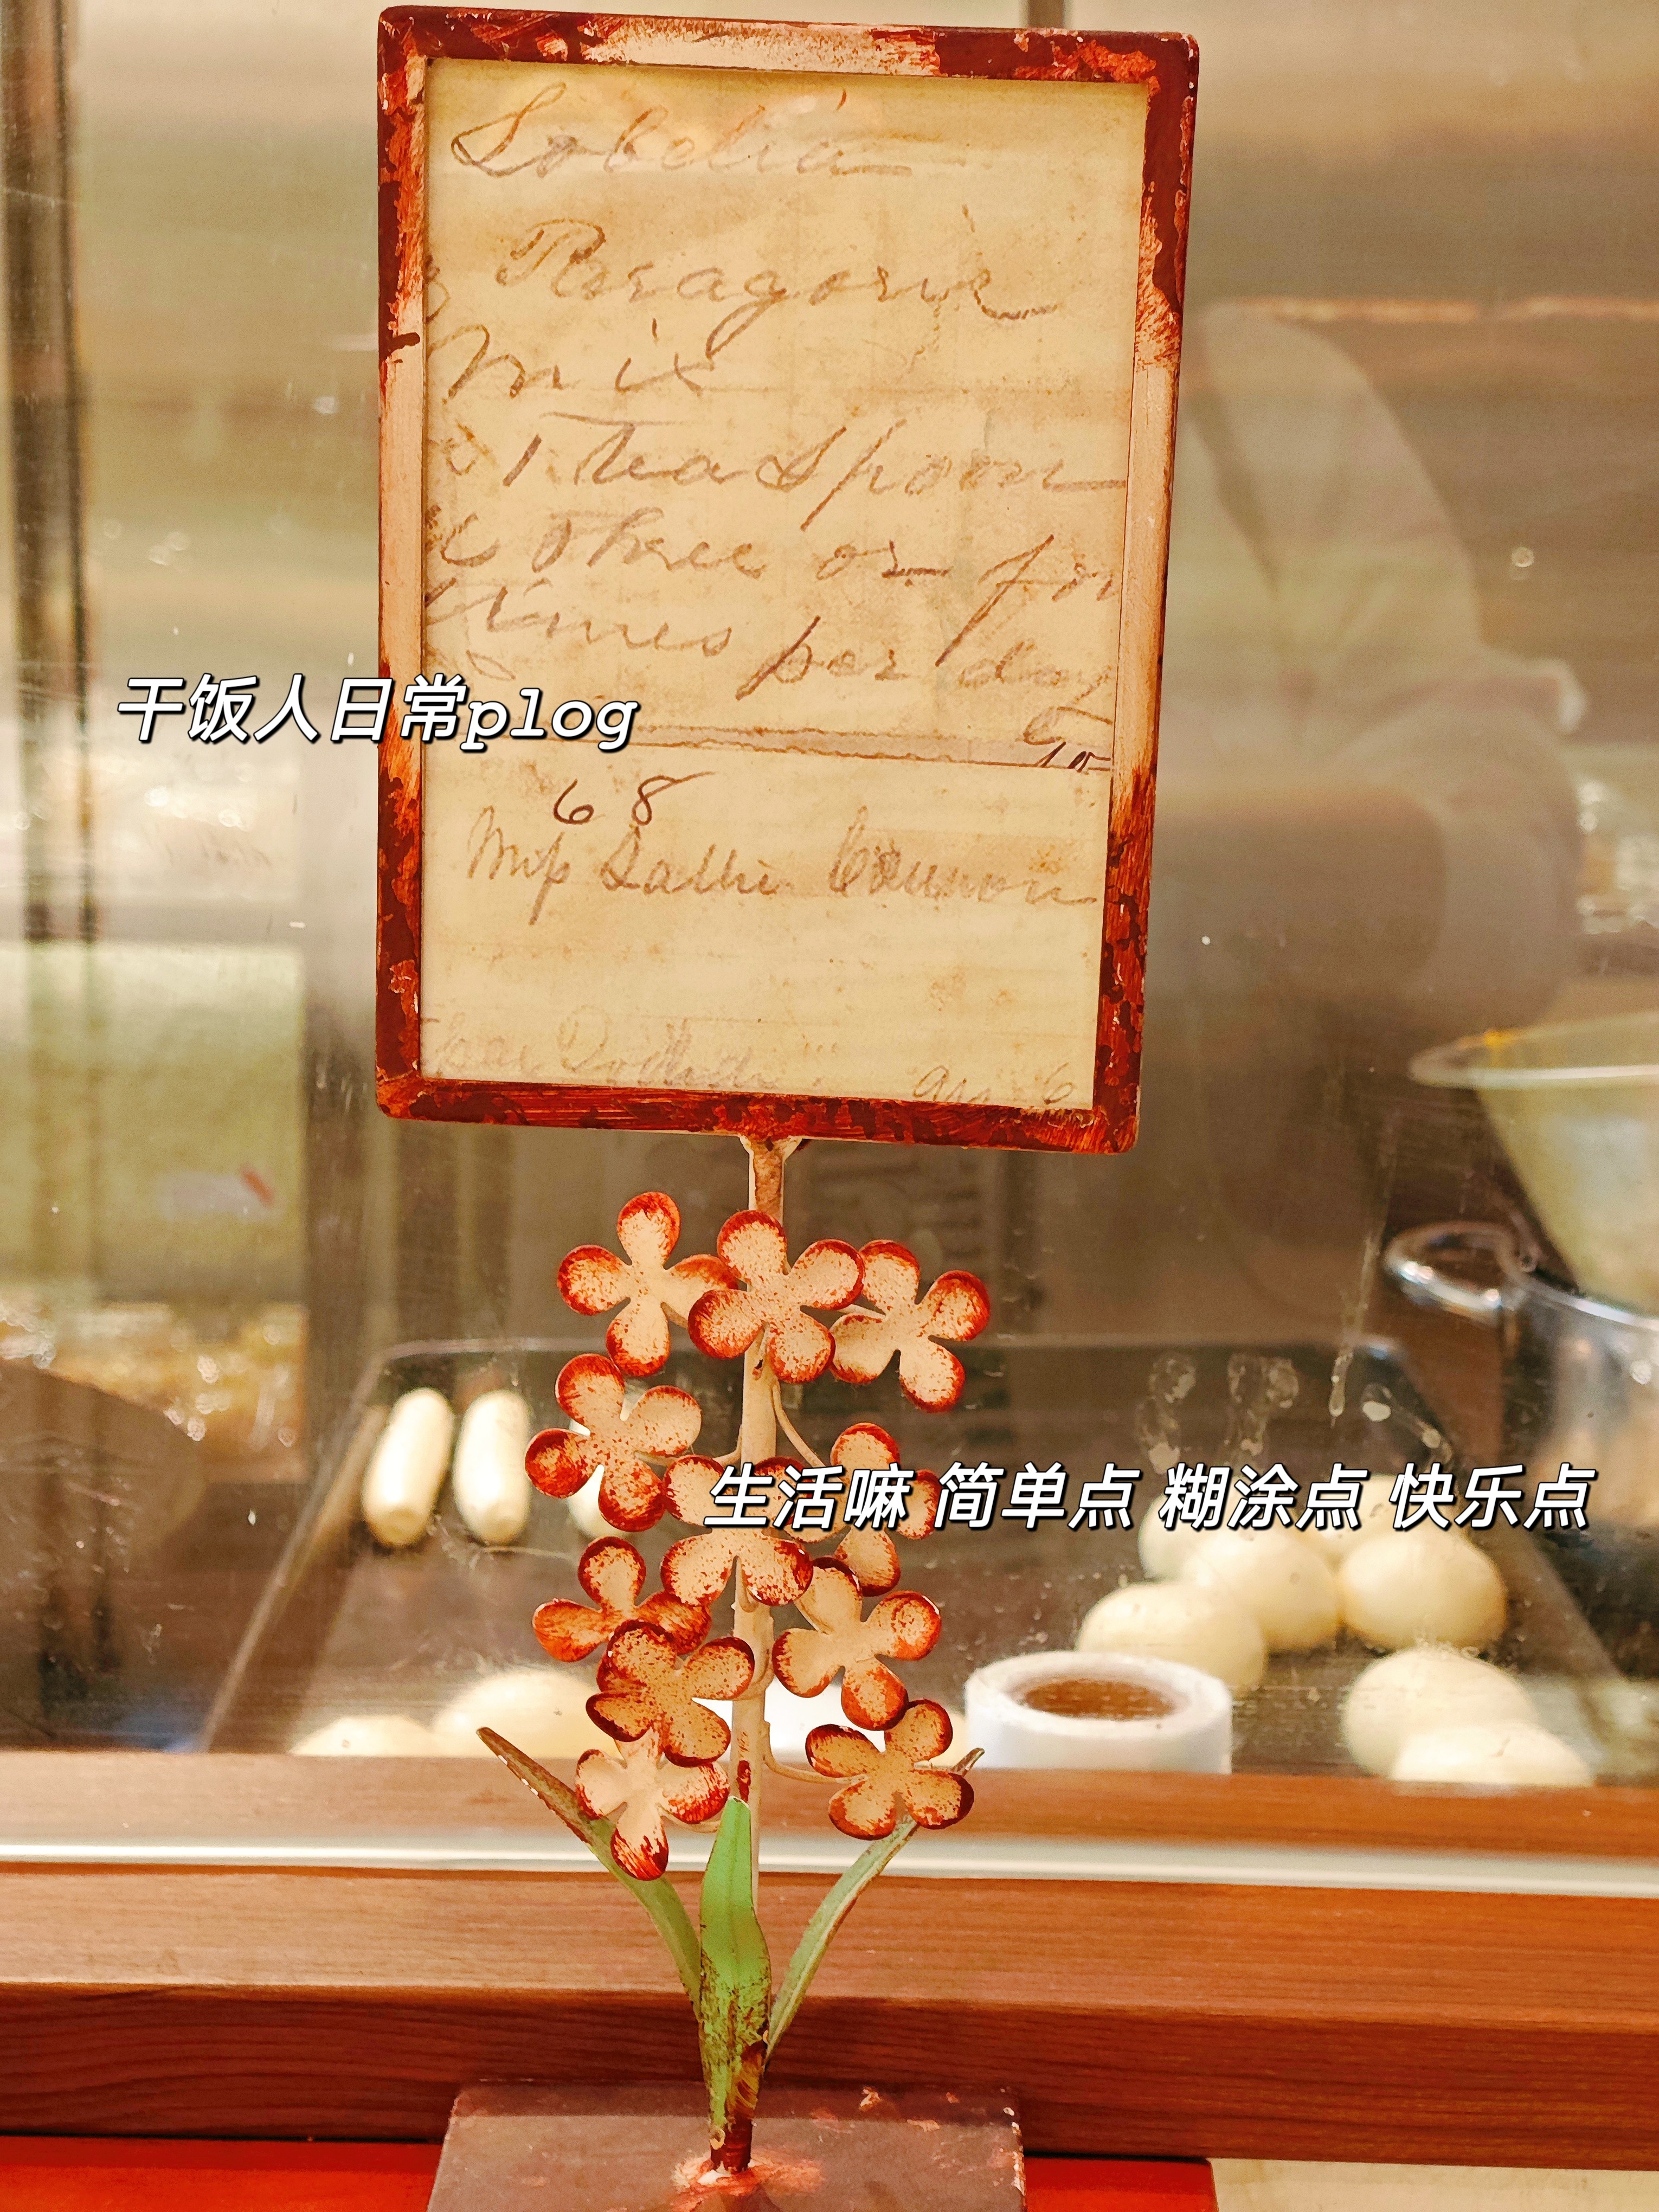 Lobelia
Paragoric
Mix
1 teaspoon
three or fou
times per day
干饭人日常plog
68
Miss Sallie Cannon
生活嘛 简单点 糊涂点 快乐点